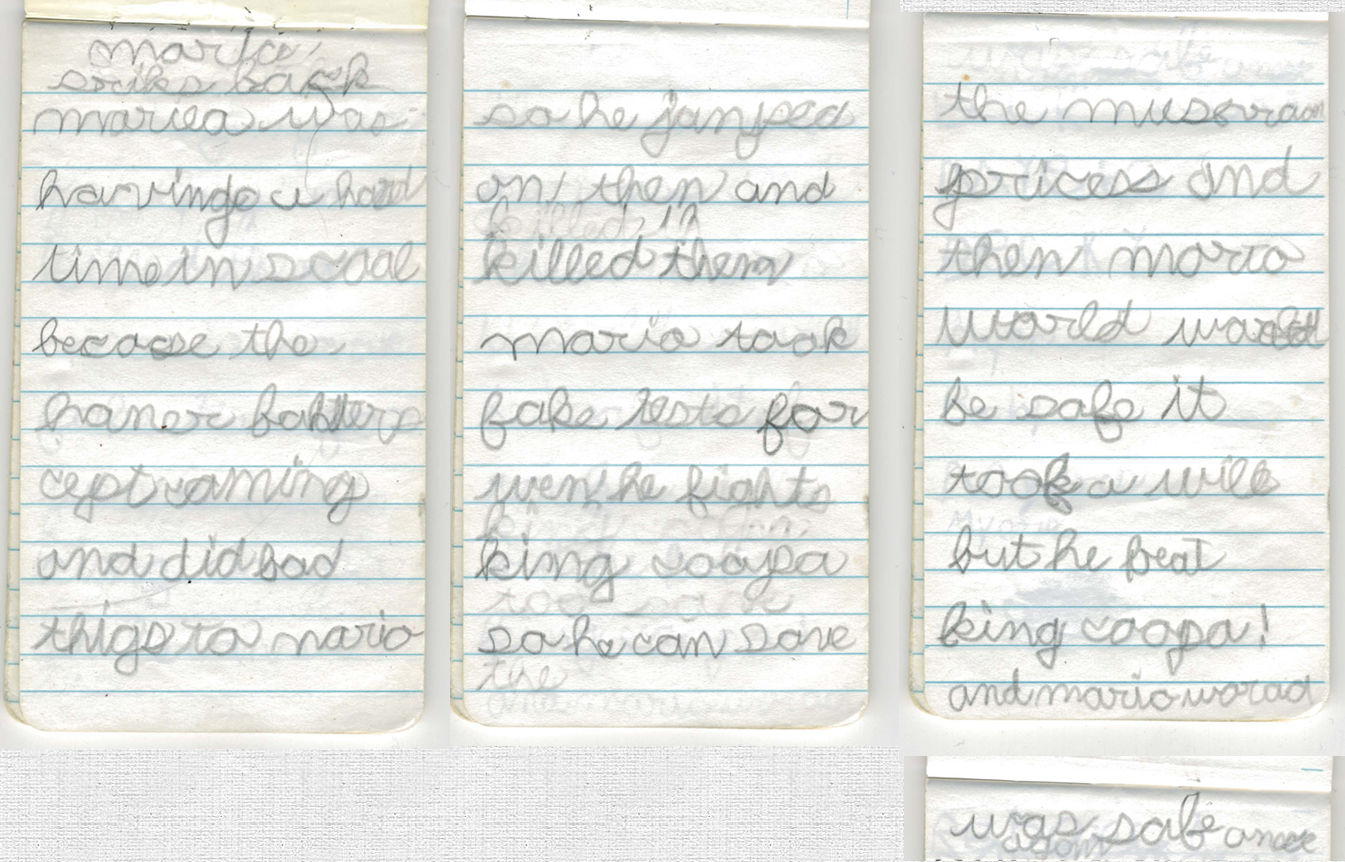 mario
sriks back
mariea was
havinge a hard
time in scoal
becaose the
haner batters
cept caming
and did bad
thigs to mario
so he jamped
on then and
killed them
mario took
fake tests for
wen he fights
king coopa
so he can save
the musoraom
pricess and
then mario
world wand
be safe it
took a wile
but he beat
king coopa!
and mario worad
was safe once
agan